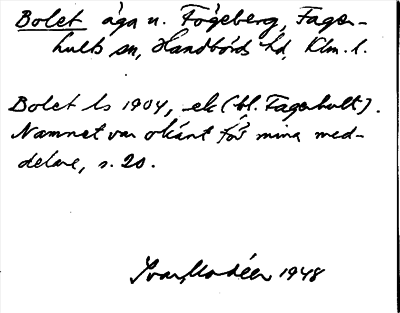 Bolet äga u. Fågeberg, Fager-
hults sn, Handbörds hd, Klm. l.
Bolet ls 1904, ek (bl. Fagerhult).
Namnet var okänt för mina med-
delare, s. 20.
Ivar Modéer 1948